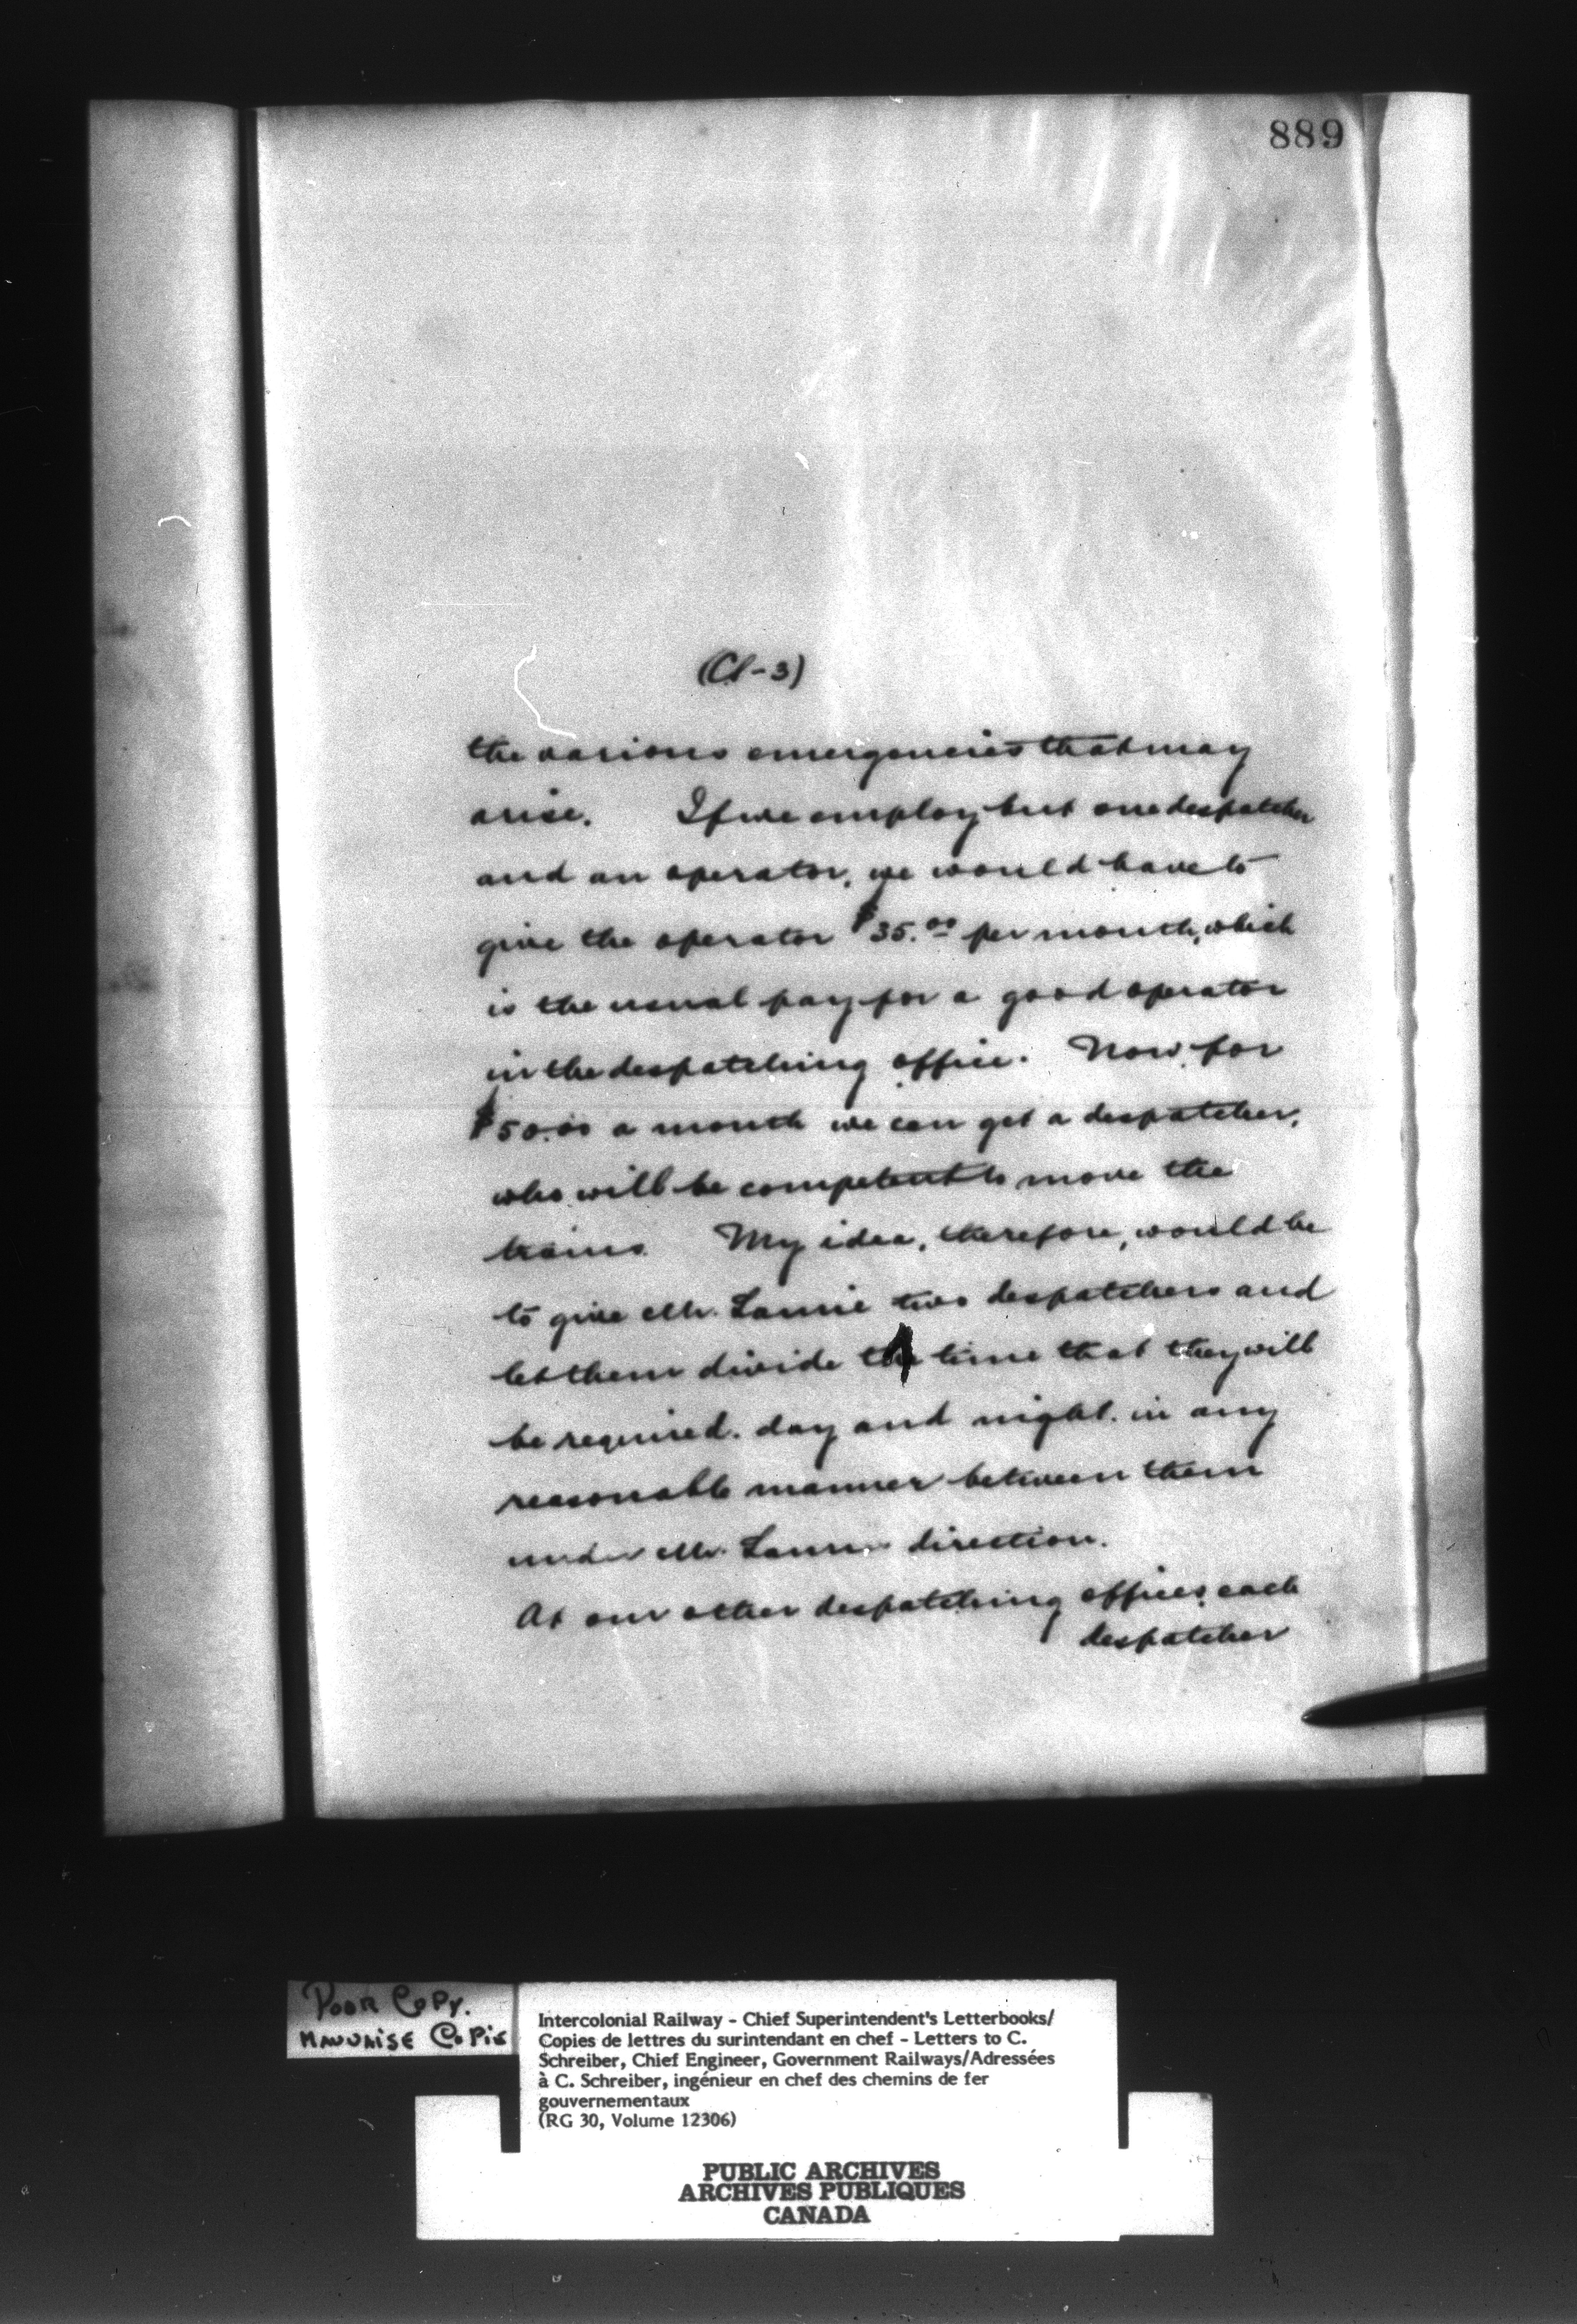 889
(Cl-3)
the various emergencies that may
arise. If we employ but one despatcher
and an operator, we would have to
give the operator $35.00 per month, which
is the usual pay for a good operator
in the despatching office. Now, for
$50.00 a month we can get a despatcher,
who will be competent to move the
trains. My idea, therefore, would be
to give Mr. two despatchers and
let them divide the time that they will
be required. day and night. in any
reasonable manner between them
under Mr. direction.
At our other despatching offices, each
despatcher
POOR COPY.
MAUVAISE COPIE
Intercolonial Railway - Chief Superintendent's Letterbooks/
Copies de lettres du surintendant en chef - Letters to C.
Schreiber, Chief Engineer, Government Railways/Adressées
à C. Schreiber, ingénieur en chef des chemins de fer
gouvernementaux
(RG 30, Volume 12306)
PUBLIC ARCHIVES
ARCHIVES PUBLIQUES
CANADA